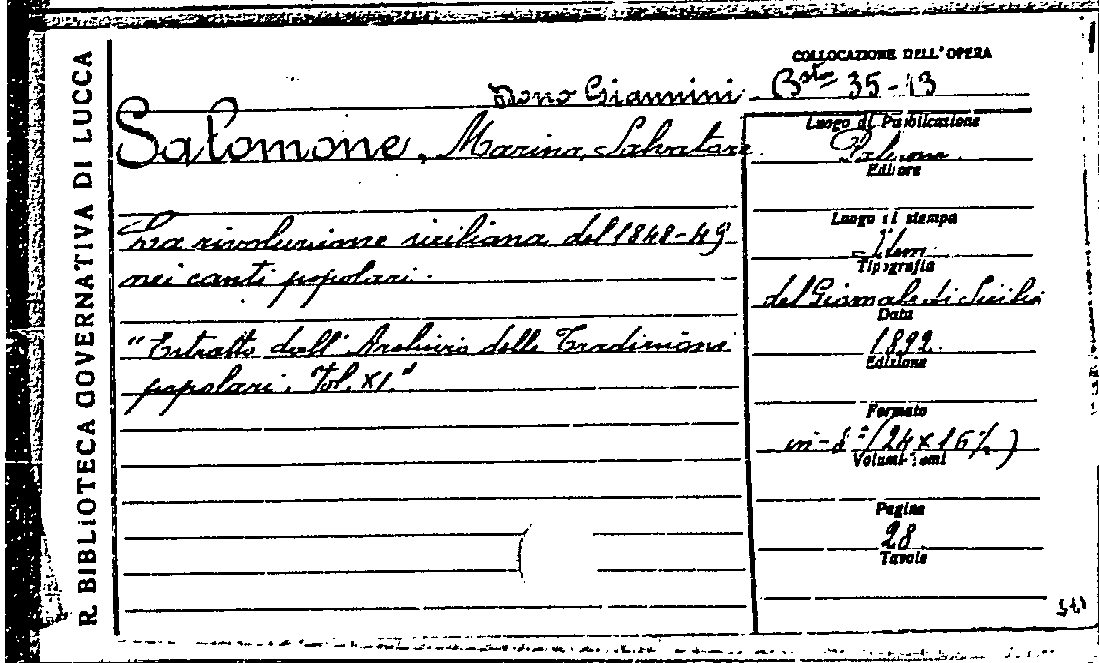 R. BIBLIOTECA GOVERNATIVA DI LUCCA
Dono Giannini
Salomone, Marino, Salvatore.
La rivoluzione siciliana del 1848-49
nei canti popolari.
"Estratto dall' Archivio delle Tradizioni
popolari. Vol. XI."
COLLOCAZIONE DELL'OPERA
Bta 35-13
Luogo di Pubblicazione
Palermo
Editore
Luogo di stampa
Idem
Tipografia
del Giornale di Sicilia
Data
1892.
Edizione
Formato
in-8º (24x16½)
Volumi-Tomi
Pagine
28
Tavole